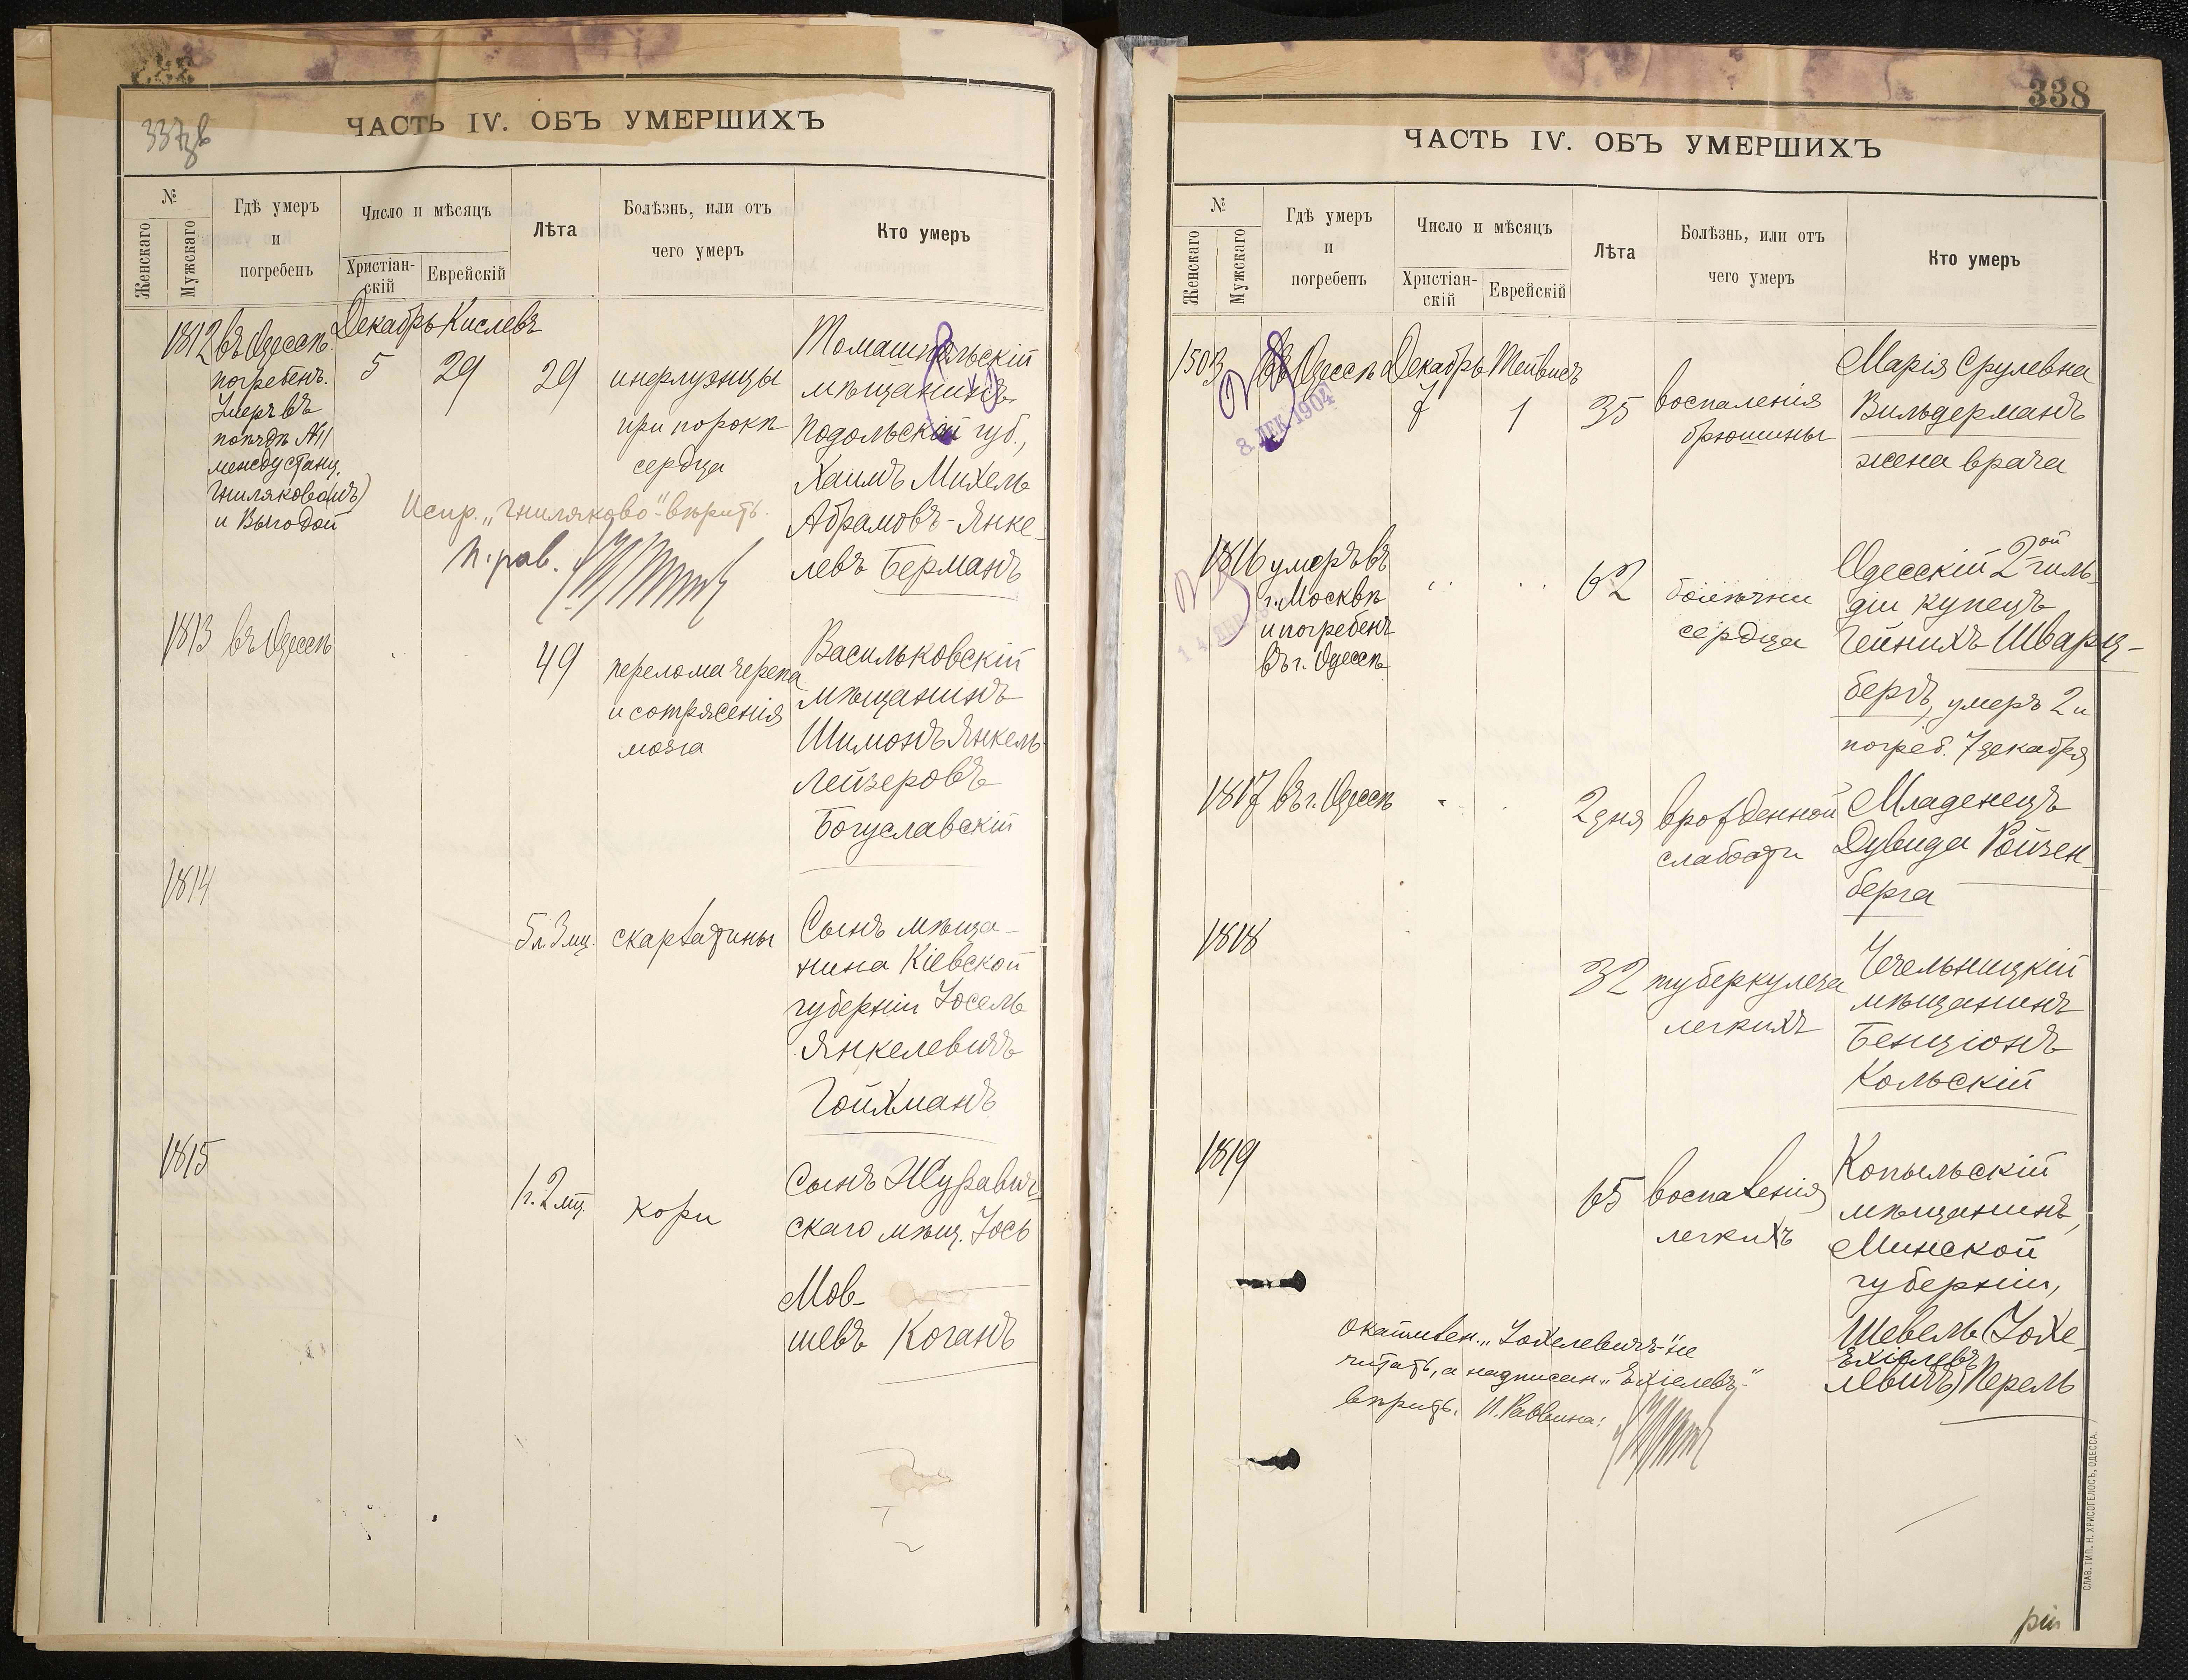 337 об
ЧАСТЬ IV. ОБЪ УМЕРШИХЪ
№
Женскаго
Мужскаго
Гдѣ умеръ
и
погребенъ
Число и мѣсяцъ
Христіан-
скій
Еврейскій
Лѣта
Болѣзнь, или отъ
чего умеръ
Кто умеръ
1812
въ Одессѣ
погребенъ.
Умеръ въ
поѣздѣ №11
между станц.
Гниляково(мъ)
и Выгодой
Декабрь
5
Кислевъ
29
29
инфлуэнцы
при порокѣ
сердца
Томашпольскій
мѣщанинъ
Подольской губ.,
Хаимъ Михель
Абрамовъ-Янке-
левъ Берманъ
Испр. „Гниляково" вѣрить.
И. рав.
1813
въ Одессѣ
49
перелома черепа
и сотрясенія
мозга
Васильковскій
мѣщанинъ
Шимонъ Янкель-
Лейзеровъ
Богуславскій
1814
5 л 3 мц.
скарлатины
Сынъ мѣща-
нина Кіевской
губерніи Іосель
Янкелевичъ
Гойхманъ
1815
1 г. 2 мц.
кори
Сынъ Журавич-
скаго мѣщ. Іось
Мов-
шевъ Коганъ
338
ЧАСТЬ IV. ОБЪ УМЕРШИХЪ
№
Женскаго
Мужскаго
Гдѣ умеръ
и
погребенъ
Число и мѣсяцъ
Христіан-
скій
Еврейскій
Лѣта
Болѣзнь, или отъ
чего умеръ
Кто умеръ
1503
въ Одессѣ
8. ДЕК. 1904
Декабрь
7
Тейвисъ
1
35
воспаленія
брюшины
Марія Срулевна
Вильдерманъ
жена врача
1816
умеръ въ
г. Москвѣ
и погребенъ
въ г. Одессѣ
62
болѣзни
сердца
Одесскій 2ой гиль-
діи купецъ
Гейнихъ Шварц-
бергъ, умеръ 2 и
погреб. 7 декабря
1817
въ г. Одессѣ
2 дня
врожденной
слабости
Младенецъ
Дувида Ройзен-
берга
1818
32
туберкулеза
легкихъ
Чечельницкій
мѣщанинъ
Бенціонъ
Кольскій
1819
65
воспаленія
легкихъ
Копыльскій
мѣщанинъ,
Минской
губерніи,
Шевель (Іохе-
Ехіелевъ
левичъ) Перель
окаймлен. „Іохелевичъ" не
читать, а надписан. „Ехіелевъ"
вѣрить. И. Раввина:
СЛАВ. ТИП. Н. ХРИСОГЕЛОСЪ, ОДЕССА.